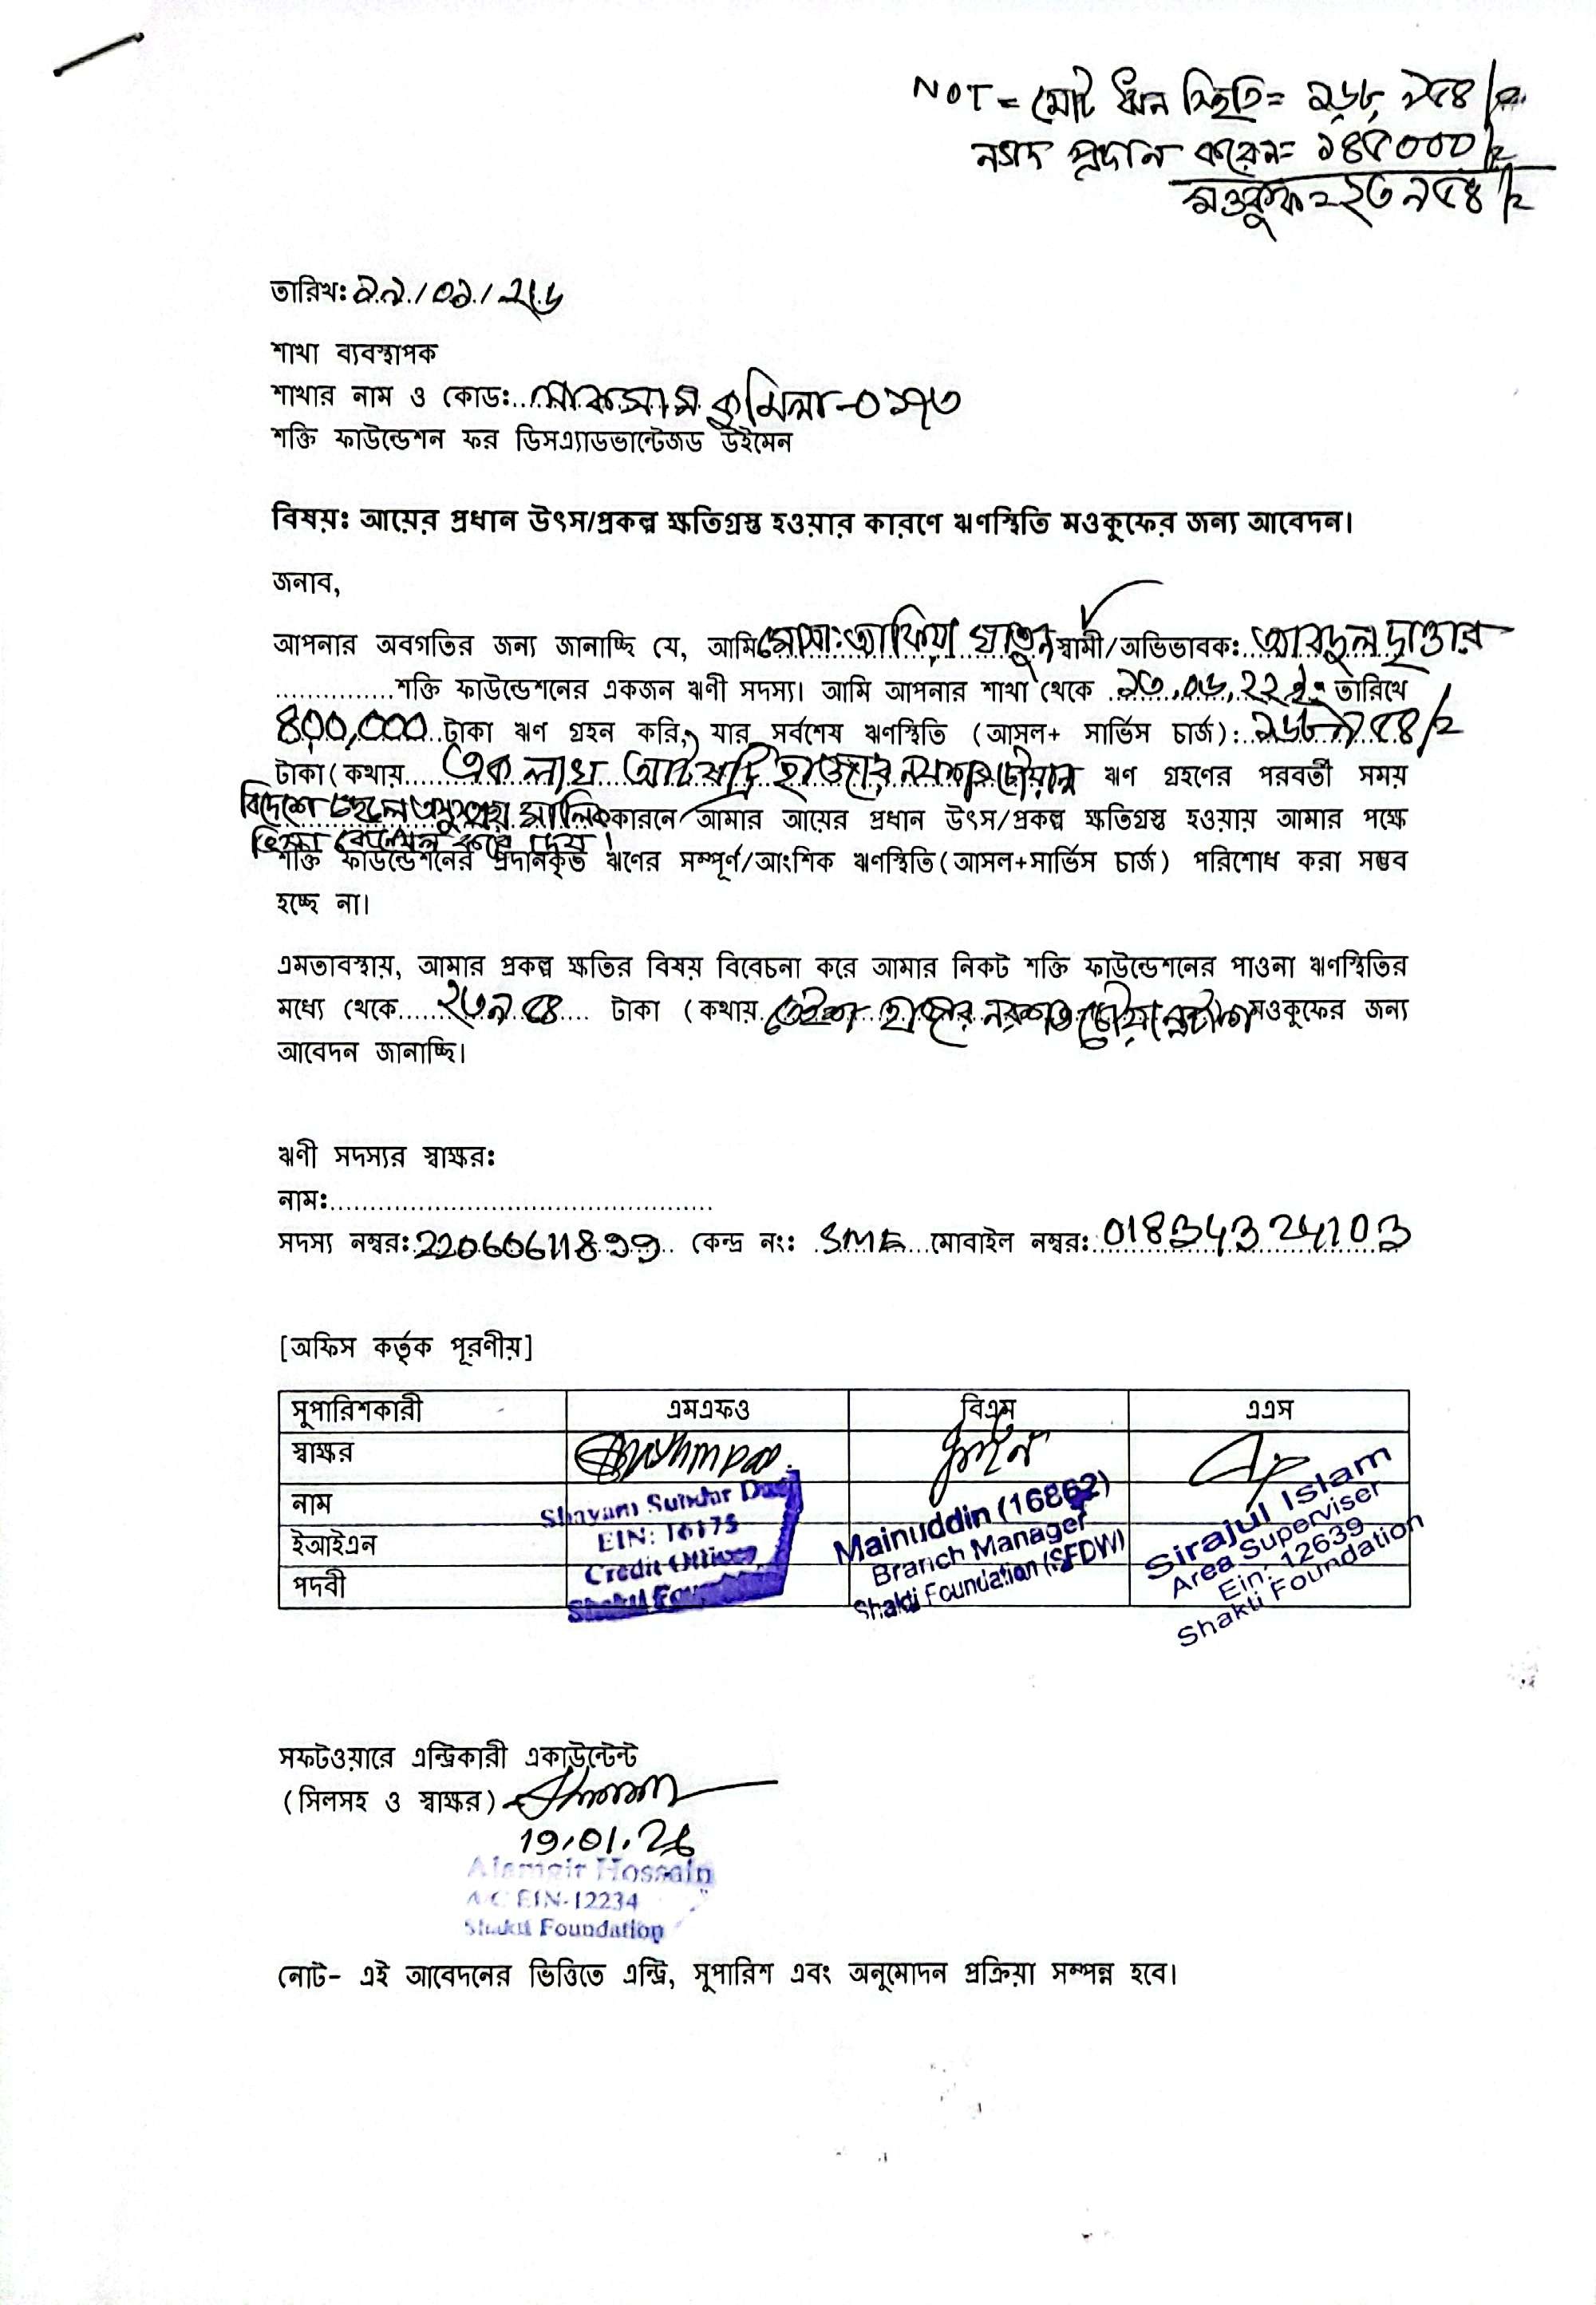 NOT = মোট ঋন স্থিতি = ১৬৮,৯৫৪/=
নগদ প্রদান করেন = ১৪৫০০০/=
মওকুফ = ২৩৯৫৪/=
তারিখঃ ১৯/০১/২৬
শাখা ব্যবস্থাপক
শাখার নাম ও কোডঃ লাকসাম কুমিল্লা-০১৭৩
শক্তি ফাউন্ডেশন ফর ডিসএ্যাডভান্টেজড উইমেন
বিষয়ঃ আয়ের প্রধান উৎস/প্রকল্প ক্ষতিগ্রস্ত হওয়ার কারণে ঋণস্থিতি মওকুফের জন্য আবেদন।
জনাব,
আপনার অবগতির জন্য জানাচ্ছি যে, আমি মোসাঃ আফিয়া খাতুন স্বামী/অভিভাবকঃ আবদুল ছাত্তার
..............শক্তি ফাউন্ডেশনের একজন ঋণী সদস্য। আমি আপনার শাখা থেকে ১৩.০৬.২২ ইং তারিখে
৪০০,০০০ টাকা ঋণ গ্রহন করি, যার সর্বশেষ ঋণস্থিতি (আসল+ সার্ভিস চার্জ): ১৬৮৯৫৪/=
টাকা (কথায় এক লাখ আটষট্টি হাজার নয়শত চৌয়ান্ন ঋণ গ্রহণের পরবর্তী সময়
বিদেশে ছেলে অসুস্থ হয় মালিক কারনে আমার আয়ের প্রধান উৎস/প্রকল্প ক্ষতিগ্রস্ত হওয়ায় আমার পক্ষে
ভিসা কেনসেল করে দেয়।
শক্তি ফাউন্ডেশনের প্রদানকৃত ঋণের সম্পূর্ণ/আংশিক ঋণস্থিতি(আসল+সার্ভিস চার্জ) পরিশোধ করা সম্ভব
হচ্ছে না।
এমতাবস্থায়, আমার প্রকল্প ক্ষতির বিষয় বিবেচনা করে আমার নিকট শক্তি ফাউন্ডেশনের পাওনা ঋণস্থিতির
মধ্যে থেকে ২৩৯৫৪ টাকা (কথায় তেইশ হাজার নয়শত চৌয়ান্ন টাকা মওকুফের জন্য
আবেদন জানাচ্ছি।
ঋণী সদস্যর স্বাক্ষরঃ
নামঃ..............................................
সদস্য নম্বরঃ 22060611899 কেন্দ্র নংঃ SME মোবাইল নম্বরঃ 01834324103
[অফিস কর্তৃক পূরণীয়]
সুপারিশকারী এমএফও বিএম এএস
স্বাক্ষর
নাম Shayam Sundar Das Mainuddin (16862) Sirajul Islam
ইআইএন EIN: 16175 Branch Manager Area Superviser
পদবী Credit Officer Shakti Foundation (SFDW) Ein: 12639
Shakti Foundation
সফটওয়ারে এন্ট্রিকারী একাউন্টেন্ট
(সিলসহ ও স্বাক্ষর)
19.01.26
Alamgir Hossain
A/C EIN-12234
Shakti Foundation
নোট- এই আবেদনের ভিত্তিতে এন্ট্রি, সুপারিশ এবং অনুমোদন প্রক্রিয়া সম্পন্ন হবে।